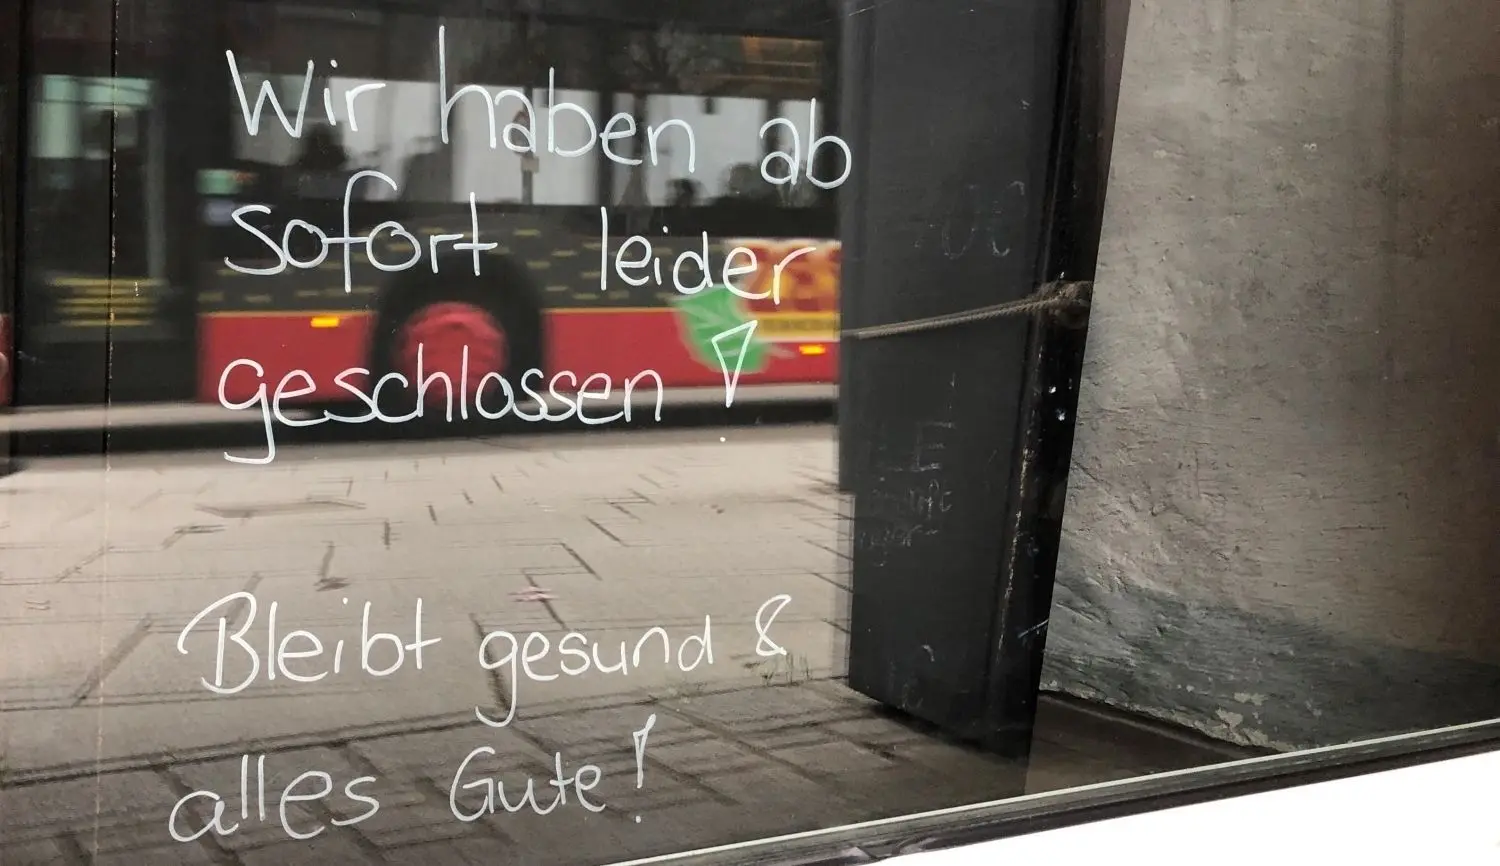 Wir haben ab
sofort leider
geschlossen!
Bleibt gesund &
alles Gute!